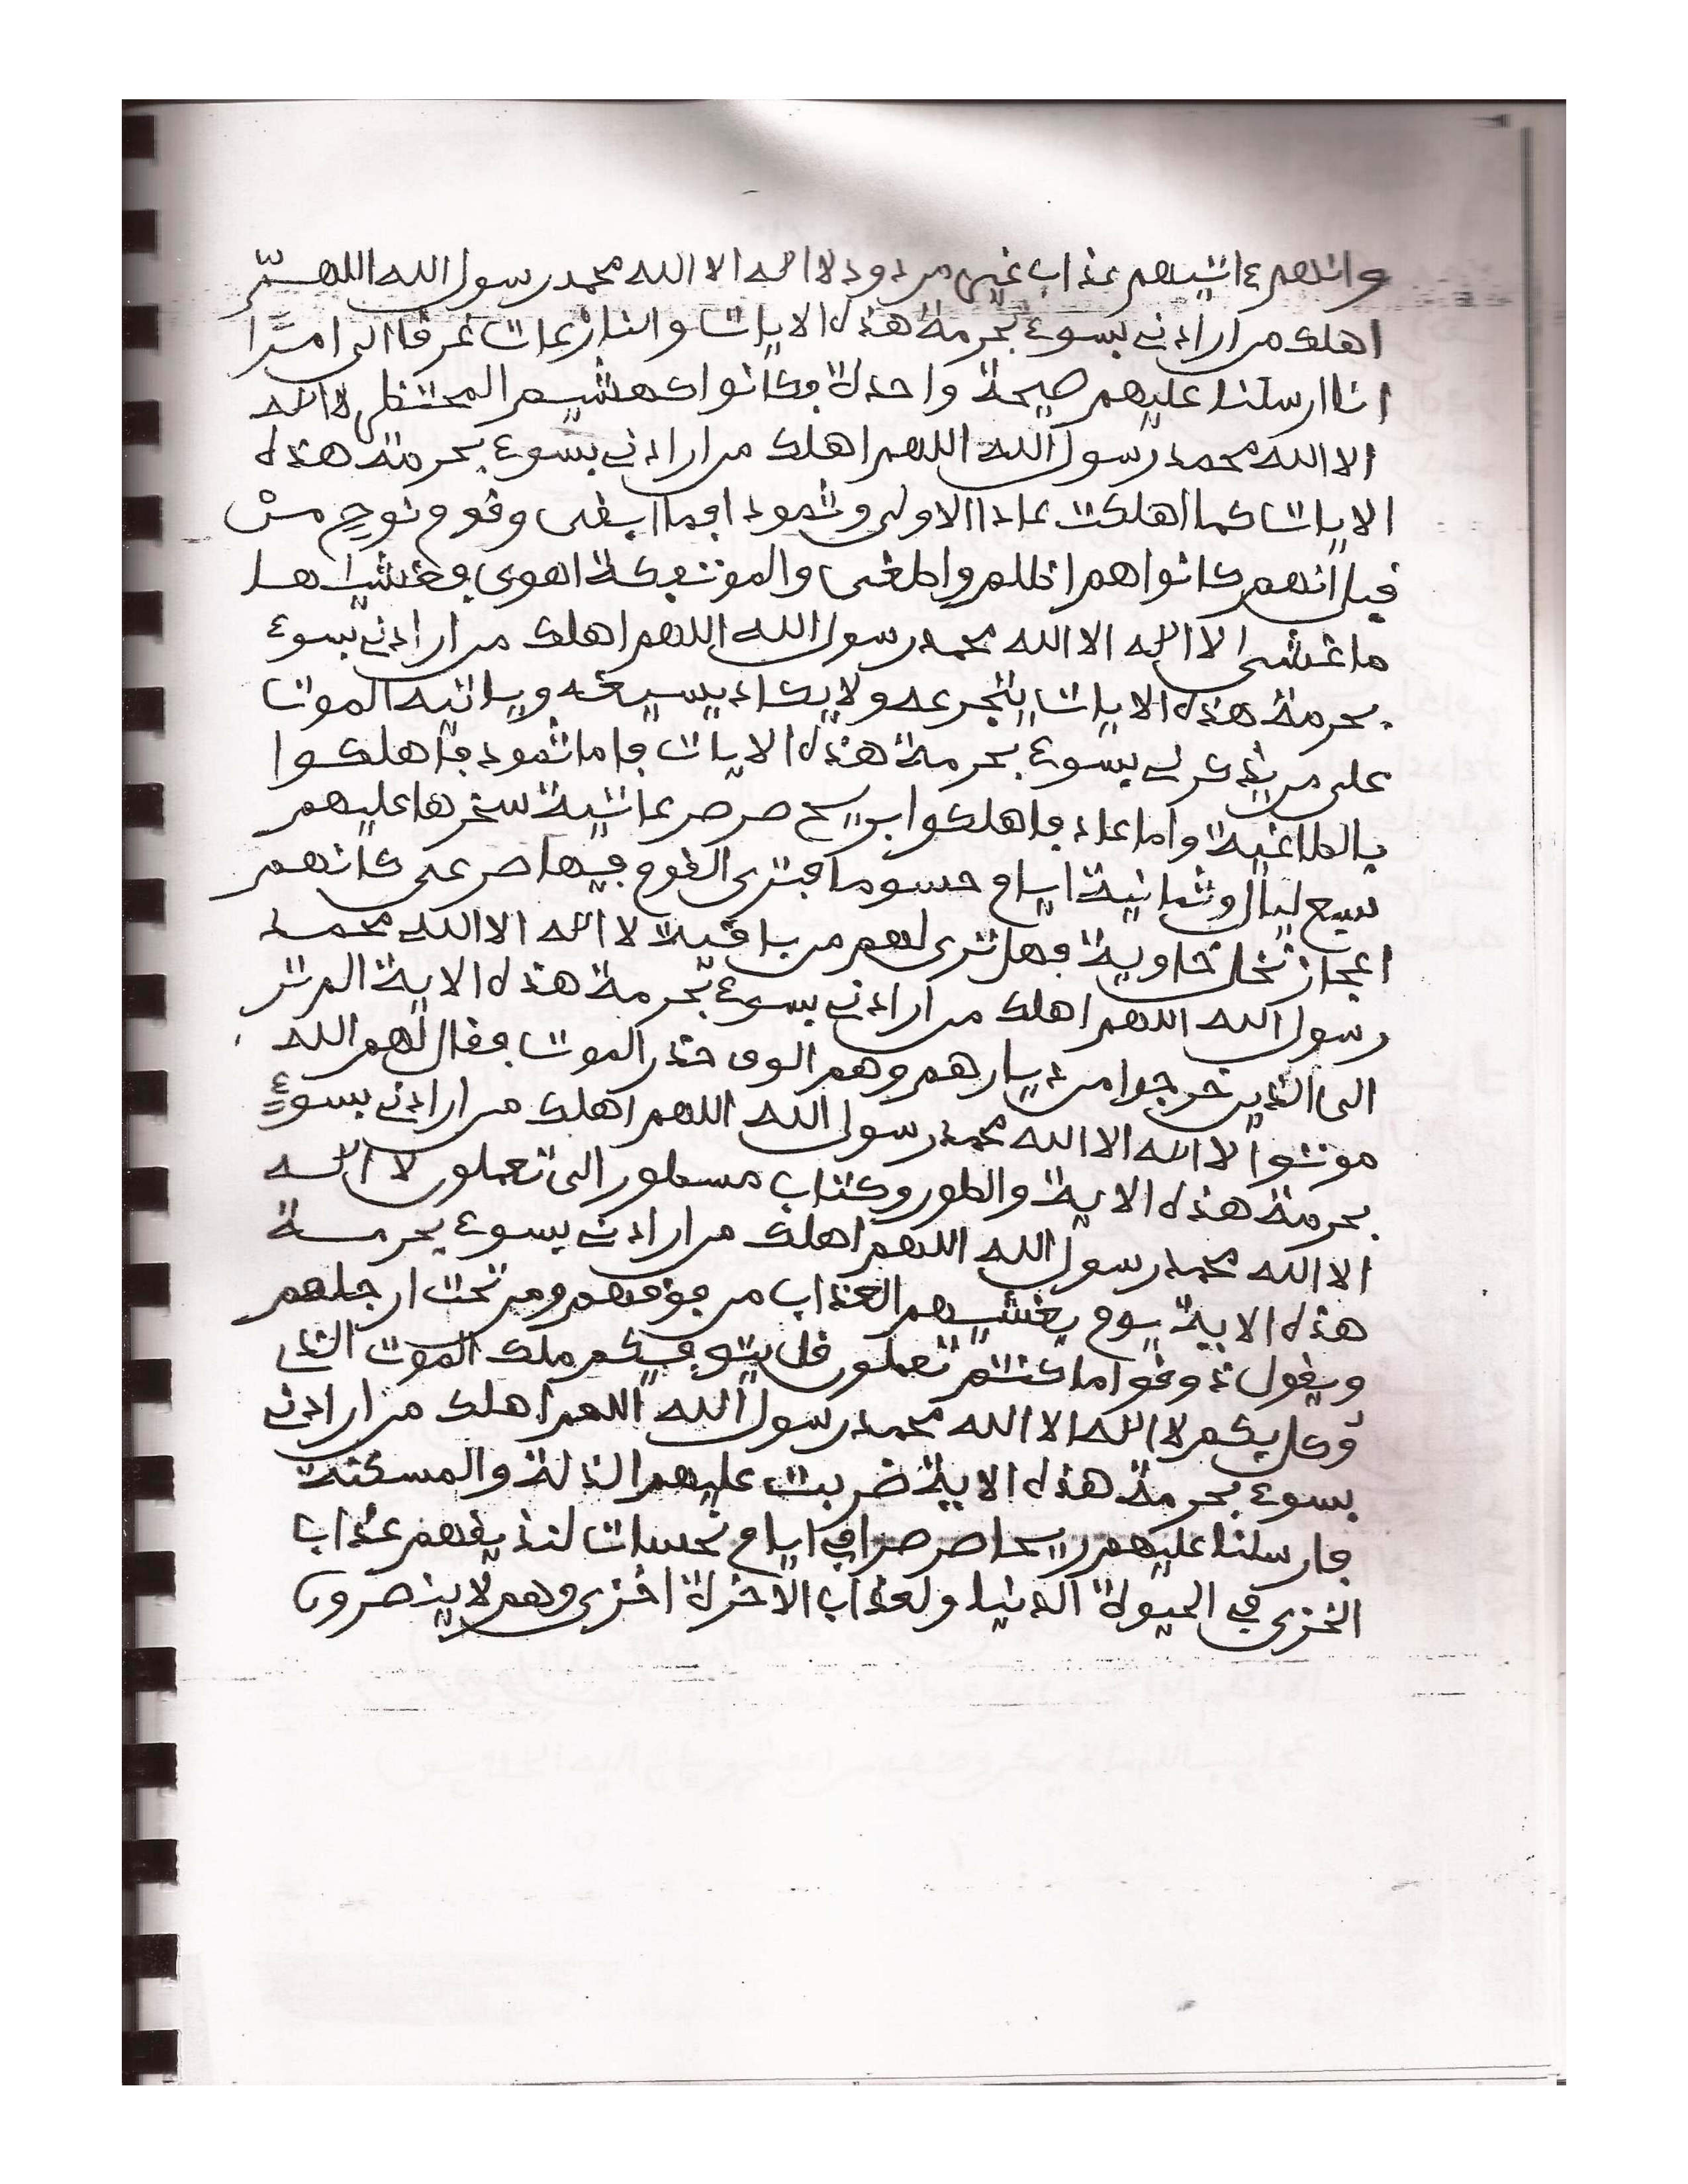 وانهم ءاتيهم عذاب غير مردود لا اله الا الله محمد رسول الله اللهم
اهلك من ارادني بسوء بحرمة هذه الايات والنازعات غرقا الى امرا
انا ارسلنا عليهم صيحة واحدة فكانوا كهشيم المحتظر لا اله
الا الله محمد رسول الله اللهم اهلك من ارادني بسوء بحرمة هذه
الايات كما اهلكت عادا الاولى وثمودا فما ابقى وقوم نوح من
قبل انهم كانوا هم اظلم واطغى والموتفكة اهوى فغشيها
ما غشى لا اله الا الله محمد رسول الله اللهم اهلك من ارادني بسوء
بحرمة هذه الايات يتجرعه ولا يكاد يسيغه وياتيه الموت
على من يذكرني بسوء بحرمة هذه الايات فاما ثمود فاهلكوا
بالطاغية واما عاد فاهلكوا بريح صرصر عاتية سخرها عليهم
سبع ليال وثمانية ايام حسوما فترى القوم فيها صرعى كانهم
اعجاز نخل خاوية فهل ترى لهم من باقية لا اله الا الله محمد
رسول الله اللهم اهلك من ارادني بسوء بحرمة هذه الاية الم تر
الى الذين خرجوا من ديارهم وهم الوف حذر الموت فقال لهم الله
موتوا لا اله الا الله محمد رسول الله اللهم اهلك من ارادني بسوء
بحرمة هذه الاية والطور وكتاب مسطور الى تعملون لا اله
الا الله محمد رسول الله اللهم اهلك من ارادني بسوء بحرمة
هذه الاية يوم يغشيهم العذاب من فوقهم ومن تحت ارجلهم
ويقول ذوقوا ما كنتم تعملون قل يتوفيكم ملك الموت الذي
وكل بكم لا اله الا الله محمد رسول الله اللهم اهلك من ارادني
بسوء بحرمة هذه الاية ضربت عليهم الذلة والمسكنة
فارسلنا عليهم ريحا صرصرا في ايام نحسات لنذيقهم عذاب
الخزى في الحيوة الدنيا ولعذاب الاخرة اخزى وهم لا ينصرون